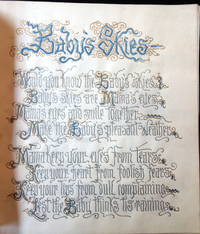 Baby's Skies
Would you know the Baby's skies?
Baby's skies are Mama's eyes.
Mama's eyes and smile together
Make the Baby's pleasant weather.
Mama keep your eyes from tears
Keep your heart from foolish fears
Keep your lips from dull complaining
Lest the Baby thinks its raining